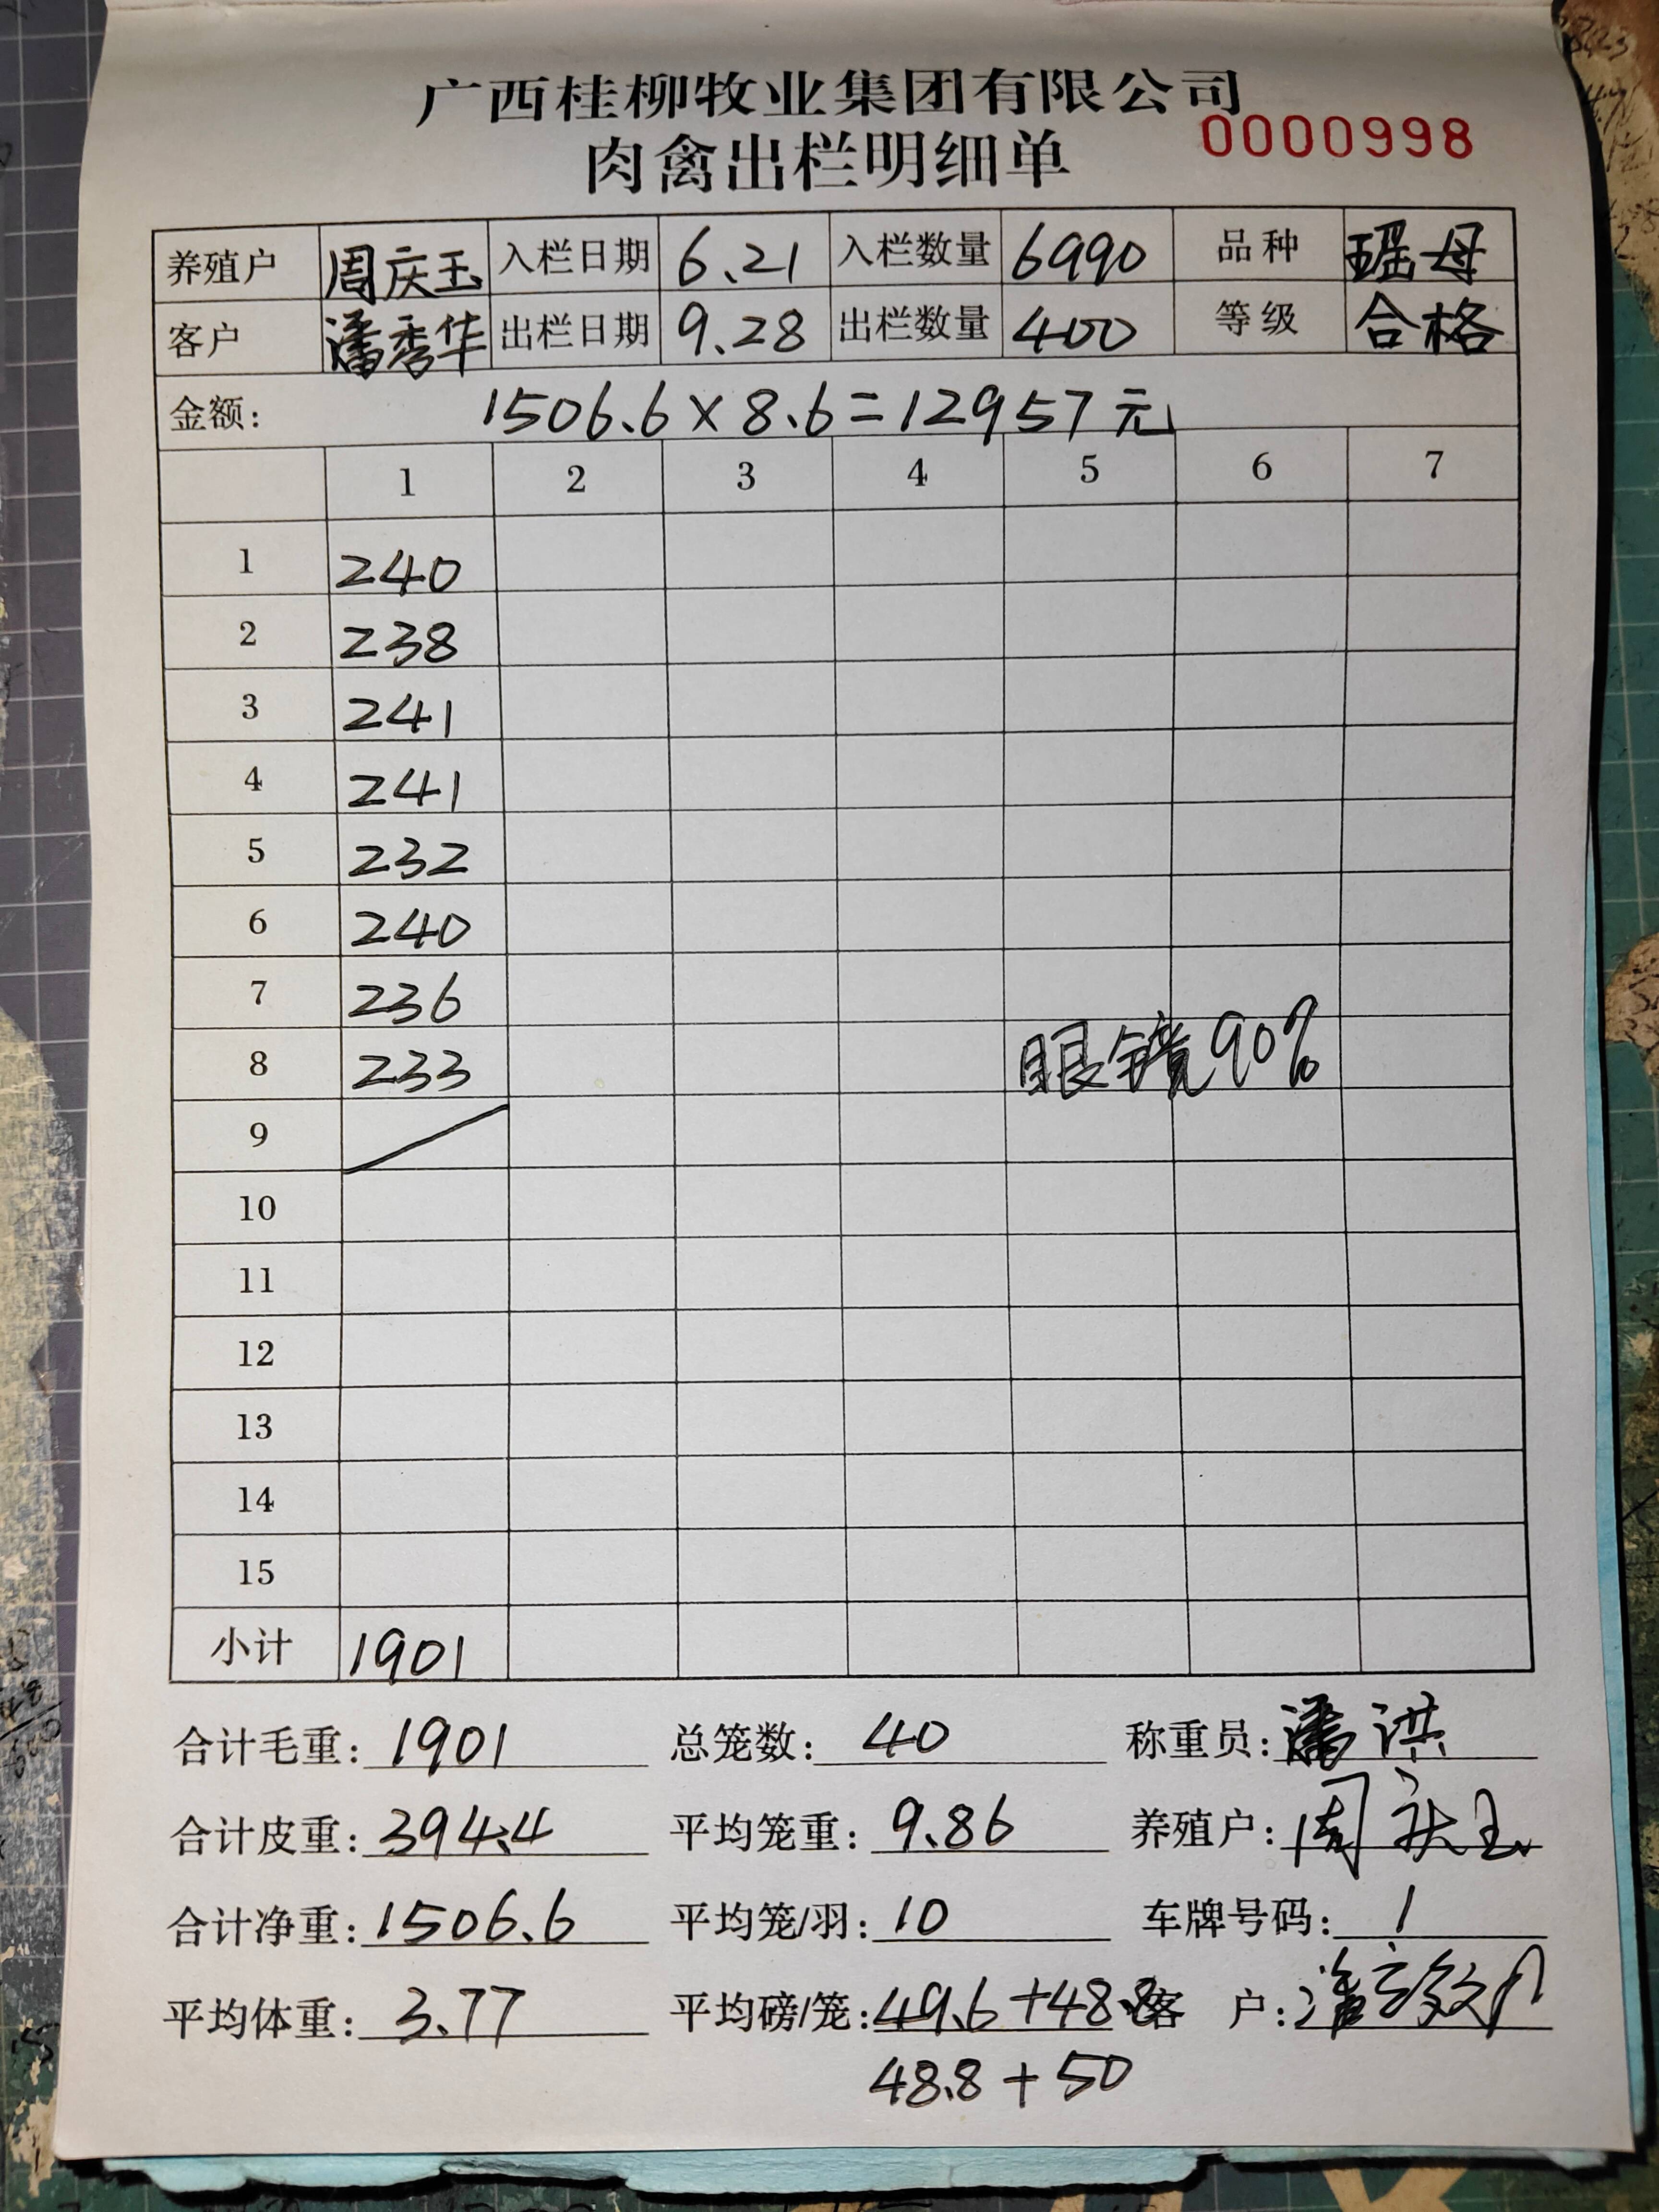 广西桂柳牧业集团有限公司
肉禽出栏明细单 0000998
养殖户 周庆玉 入栏日期 6.21 入栏数量 6990 品种 瑶母
客户 潘秀华 出栏日期 9.28 出栏数量 400 等级 合格
金额: 1506.6×8.6=12957元
1 2 3 4 5 6 7
1 240
2 238
3 241
4 241
5 232
6 240
7 236
8 233 眼镜90%
9
10
11
12
13
14
15
小计 1901
合计毛重: 1901 总笼数: 40 称重员: 潘洪
合计皮重: 394.4 平均笼重: 9.86 养殖户: 周庆玉
合计净重: 1506.6 平均笼/羽: 10 车牌号码: 1
平均体重: 3.77 平均磅/笼: 49.6+48.8 客 户:
48.8+50